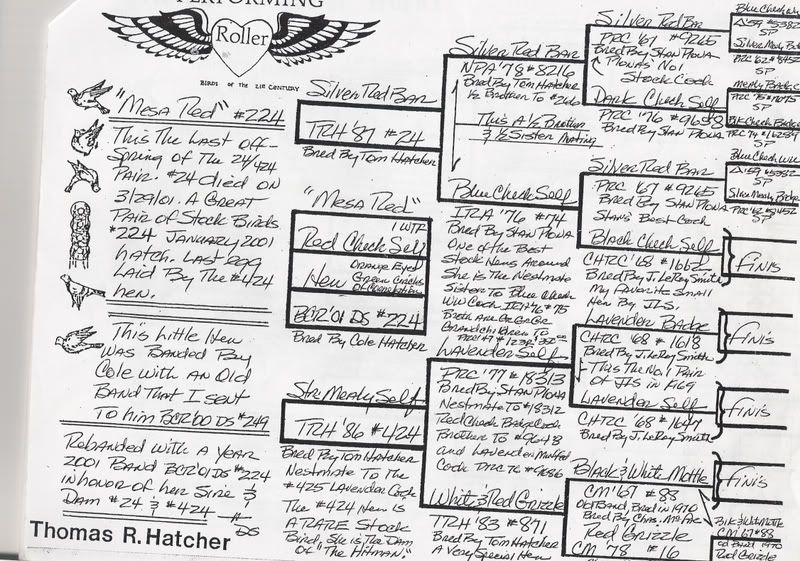 PERFORMING
Roller
BIRDS OF THE 21st CENTURY
"Mesa Red" #224
This The Last off-
Spring of The 24/424
Pair. #24 Died on
3/29/01. A Great
Pair of Stock Birds
#224 January 2001
hatch. Last egg
Laid By The #424
hen.
This Little Hen
was Banded By
Cole with An Old
Band That I sent
To him BCR'00 DS #249
Rebanded with A Year
2001 Band BCR'01 DS #224
in honor of her Sire &
Dam #24 & #424
DS
Thomas R. Hatcher
Silver Red Bar
TRH '87 #24
Bred By Tom Hatcher
"Mesa Red"
1 WTF
Red Check Self
Orange Eyed
Hen
BCR'01 DS #224
Bred By Cole Hatcher
Str. Mealy Self
TRH '86 #424
Bred By Tom Hatcher
Nestmate To The
#425 Lavender Cock
The #424 Hen is
A RARE Stock
Bird, She is The Dam
Of "The Hitman."
Silver Red Bar
NPA '78 #8216
Bred By Tom Hatcher
This A ½ Brother
& ½ Sister Mating
Blue Check Self
IRA '76 #74
Bred By Stan Plona
One of the Best
Stock Hens Around
She is The Nestmate
Sister To Blue Check
Grandchildren To
Lavender Self
PRC '77 #18313
Bred By Stan Plona
Nestmate To #18312
Red Check Badge Cock
Brother To #9648
and Lavender Muffed
Cock PRC '76 #9686
White & Red Grizzle
TRH '83 #871
Bred By Tom Hatcher
A Very Special Hen
Silver Red Bar
PRC '67 #9265
Bred By Stan Plona
Plonas' No 1
Stock Cock
Dark Check Self
PRC '76 #9658
Bred By Stan Plona
Silver Red Bar
PRC '67 #9265
Bred By Stan Plona
Stan's Best Cock
Black Check Self
CHTRC '68 #1662
Bred By J. LeRoy Smith
My Favorite Small
Hen By JLS.
Lavender Badge
CHRC '68 #1618
Bred By J. LeRoy Smith
This The No 1 Pair
of JLS in 1969
Lavender Self
CHTRC '68 #1647
Bred By J. LeRoy Smith
Black & White Mottle
CM '67 #83
Old Band, Bred in 1970
Bred By Chas. McFac
Red Grizzle
CM '78 #16
SP
Silver Mealy
PRC '62 #8452
SP
SP
SP
SP
SP
Finis
Finis
Finis
Finis
Finis
Blk & Wh Mottle
CM '67 #83
Old Band 1970
Red Grizzle